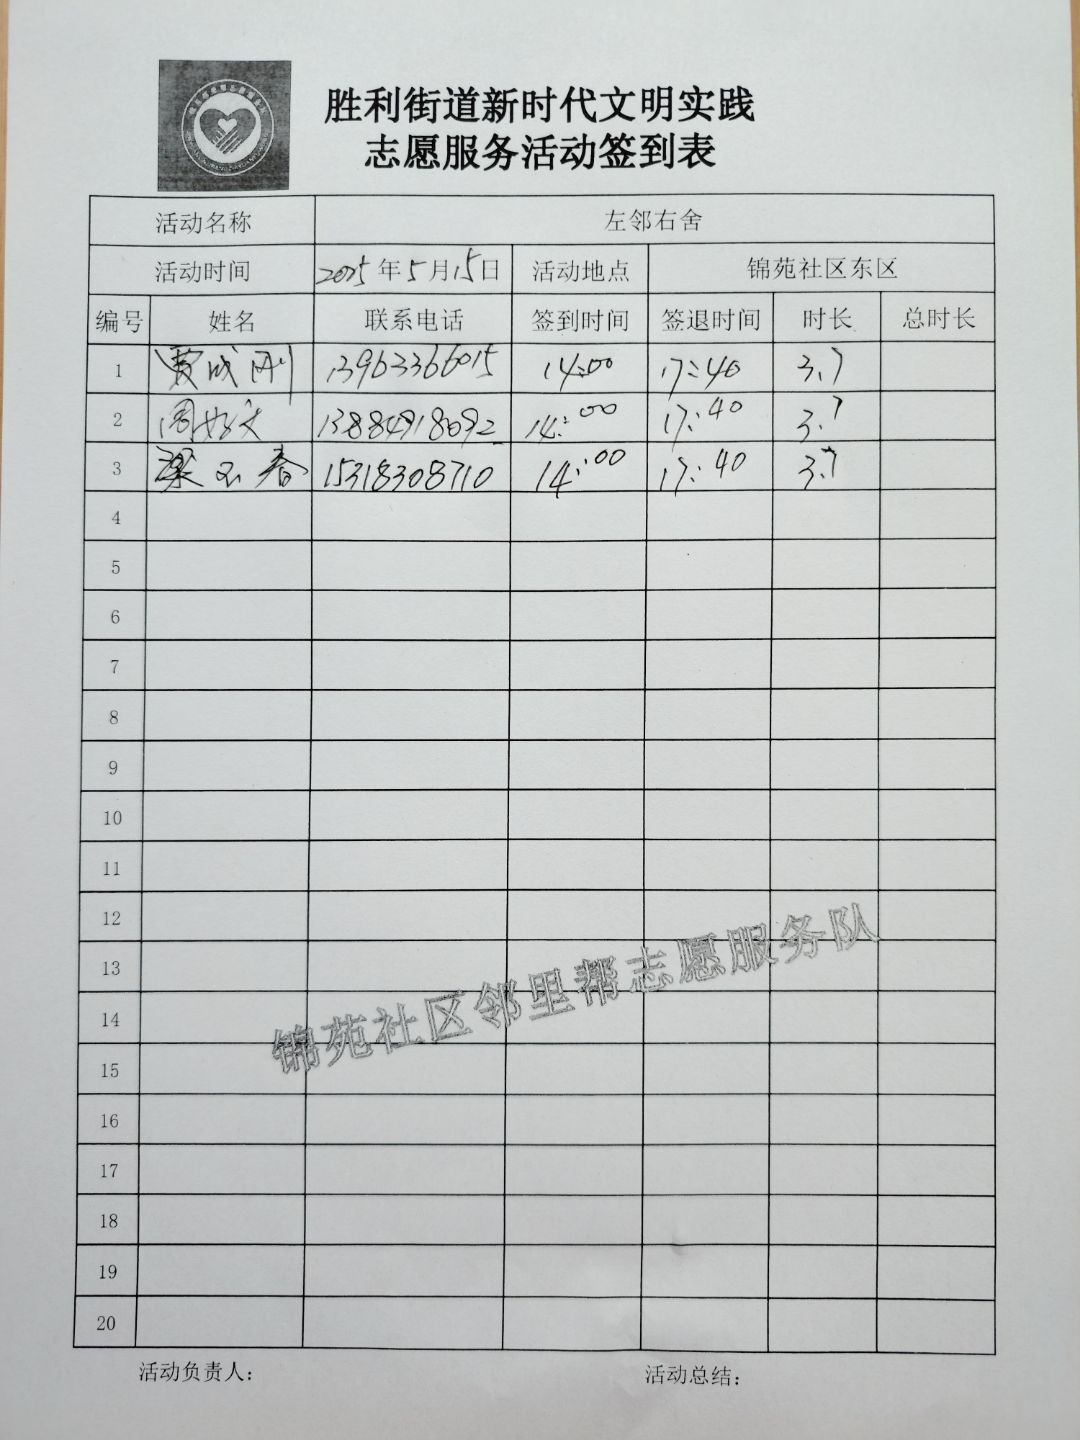 胜利街道新时代文明实践
志愿服务活动签到表
活动名称 左邻右舍
活动时间 2025年5月15日 活动地点 锦苑社区东区
编号 姓名 联系电话 签到时间 签退时间 时长 总时长
1 贾成刚 13963366015 14:00 17:40 3.7
2 周好文 13884918692 14:00 17:40 3.7
3 梁玉春 15318308710 14:00 17:40 3.7
4
5
6
7
8
9
10
11
12
13
14
15
16
17
18
19
20
锦苑社区邻里帮志愿服务队
活动负责人: 活动总结: